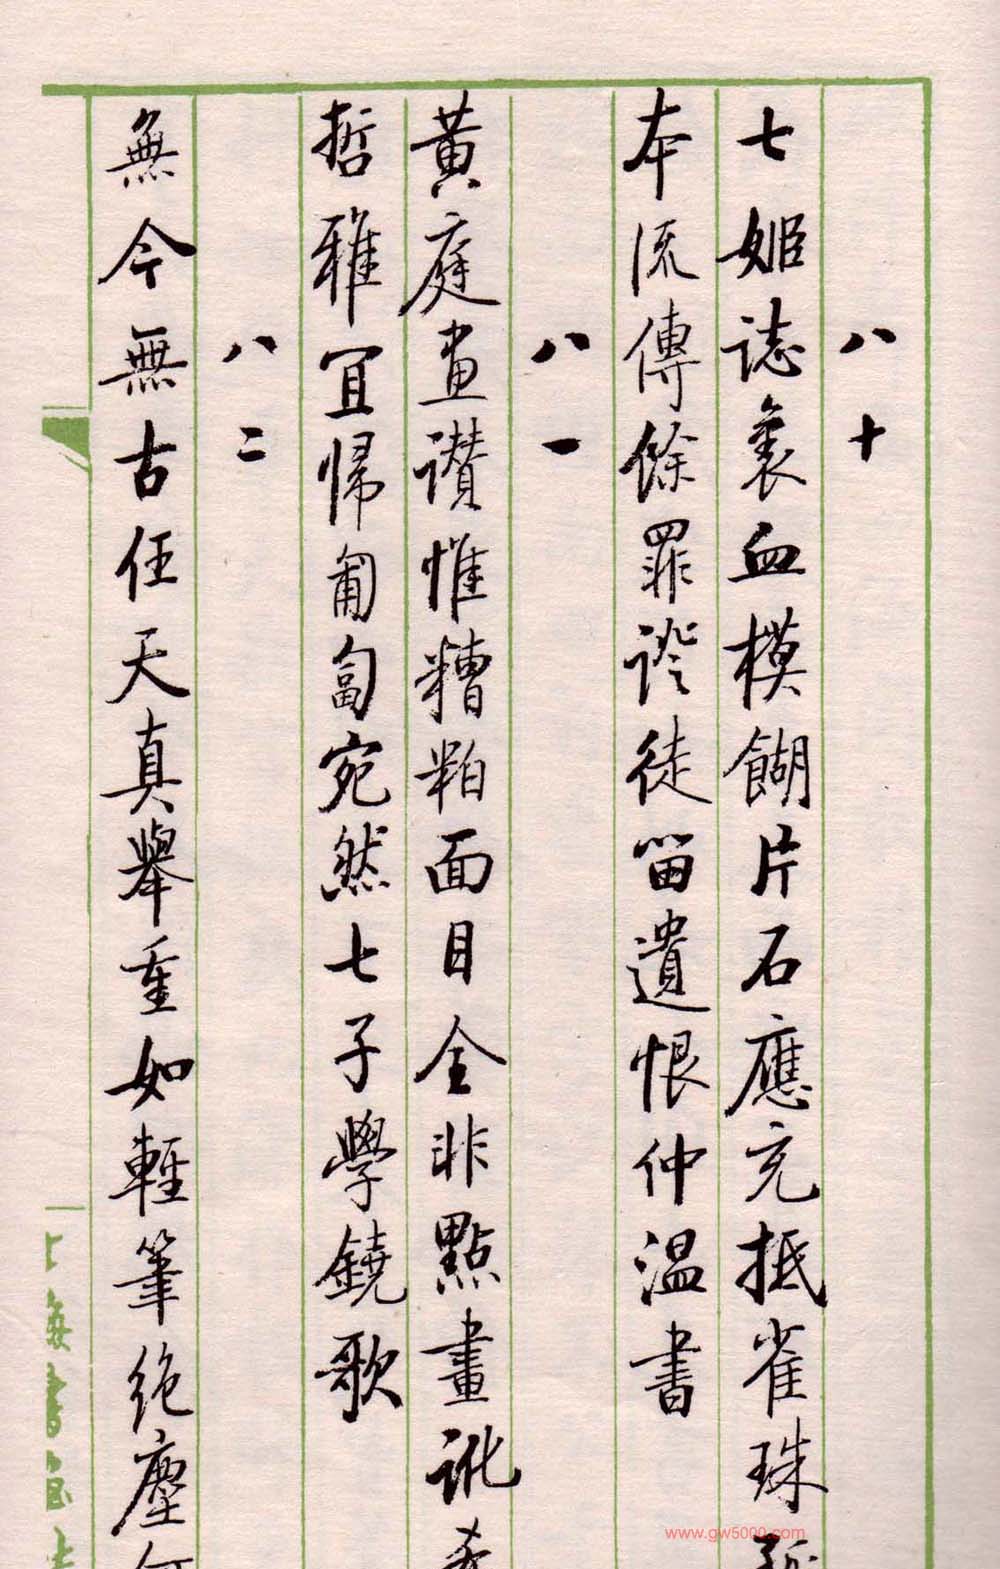 八十
七姬誌裏血模餬片石應充抵雀珠孤
本流傳餘罪證徒留遺恨仲温書
八一
黃庭畫讃惟糟粕面目全非點畫訛希
哲雅宜歸匍匐宛然七子學鐃歌
八二
無今無古任天真舉重如輕筆絶塵何
上海書画
www.gw5000.com